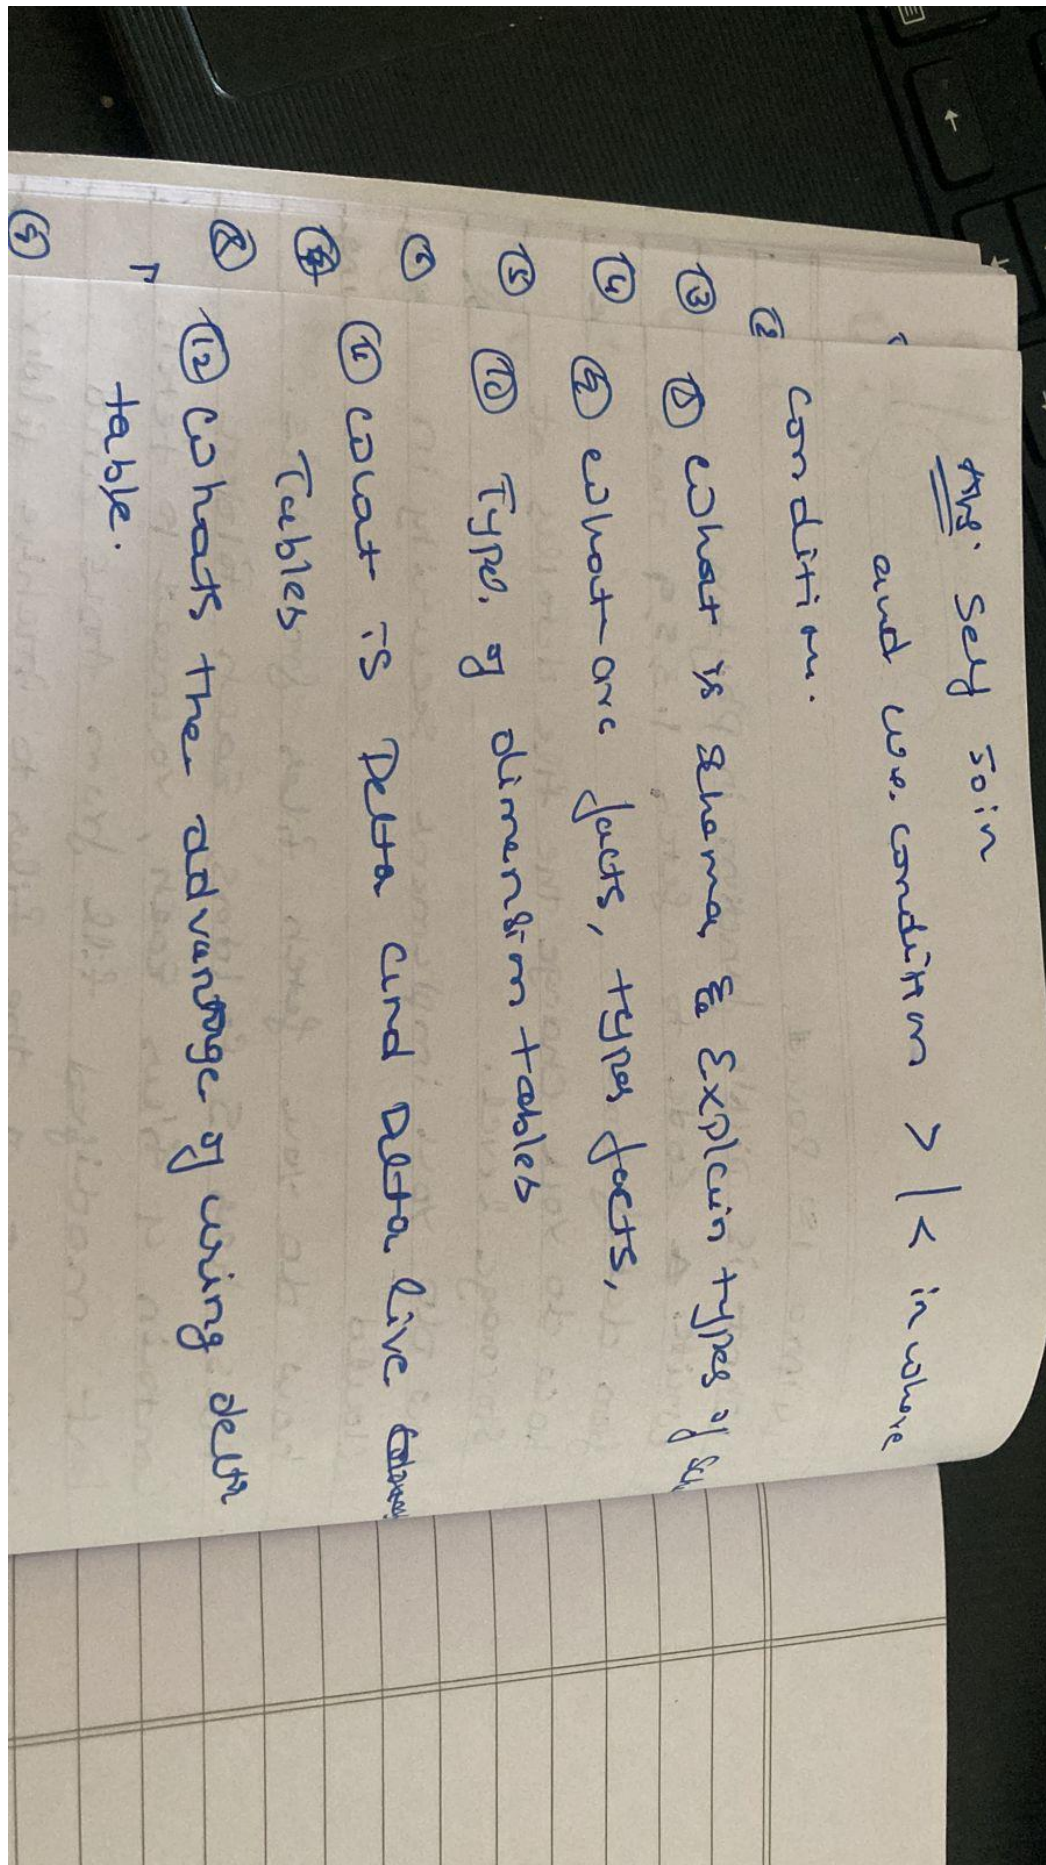 Ans: Self Join
and use condition > | < in where
condition.
⑧ What is Schema, & Explain types of
⑨ What are facts, types facts,
⑩ Type. of dimension tables
⑪ What is Delta and Delta live
Tables
⑫ Whats the advantage of using delta
table.
②
③
④
⑤
⑥
⑧
⑨